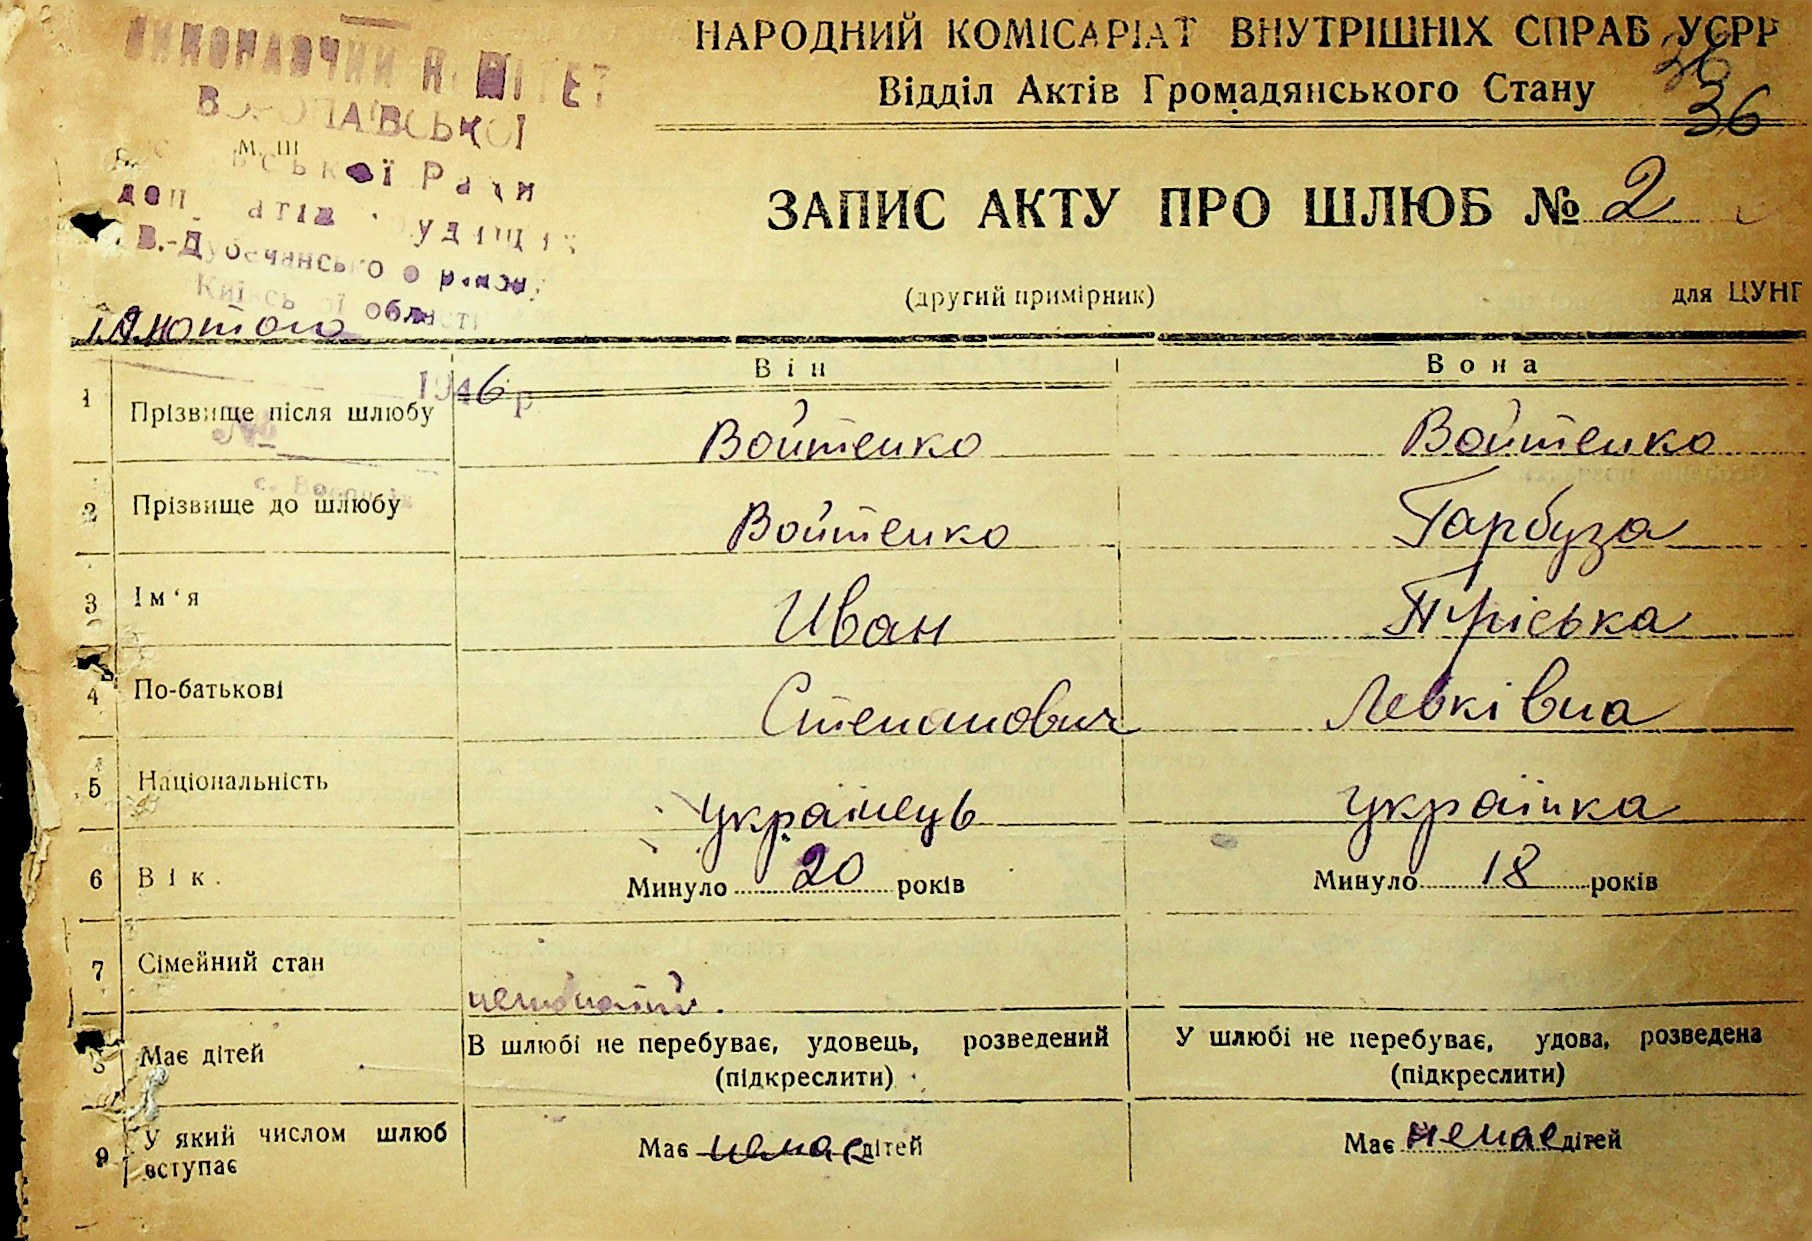 ВИКОНАВЧИЙ КОМІТЕТ
ВОРОПАЇВСЬКОЇ
Ради
В.-Дубечанського району
Київської області
лютого
1946 р
№
НАРОДНИЙ КОМІСАРІАТ ВНУТРІШНІХ СПРАБ УСРР
Відділ Актів Громадянського Стану
36
36
ЗАПИС АКТУ ПРО ШЛЮБ № 2
(другий примірник)
для ЦУНГ
Він
Вона
1 Прізвище після шлюбу Войтенко Войтенко
2 Прізвище до шлюбу Войтенко Гарбуза
3 Ім'я Иван Пріська
4 По-батькові Степанович Левківна
5 Національність українець українка
6 Вік. Минуло 20 років Минуло 18 років
7 Сімейний стан
8 Має дітей В шлюбі не перебуває, удовець, розведений У шлюбі не перебуває, удова, розведена
(підкреслити) (підкреслити)
9 У який числом шлюб вступає Має немає дітей Має немає дітей